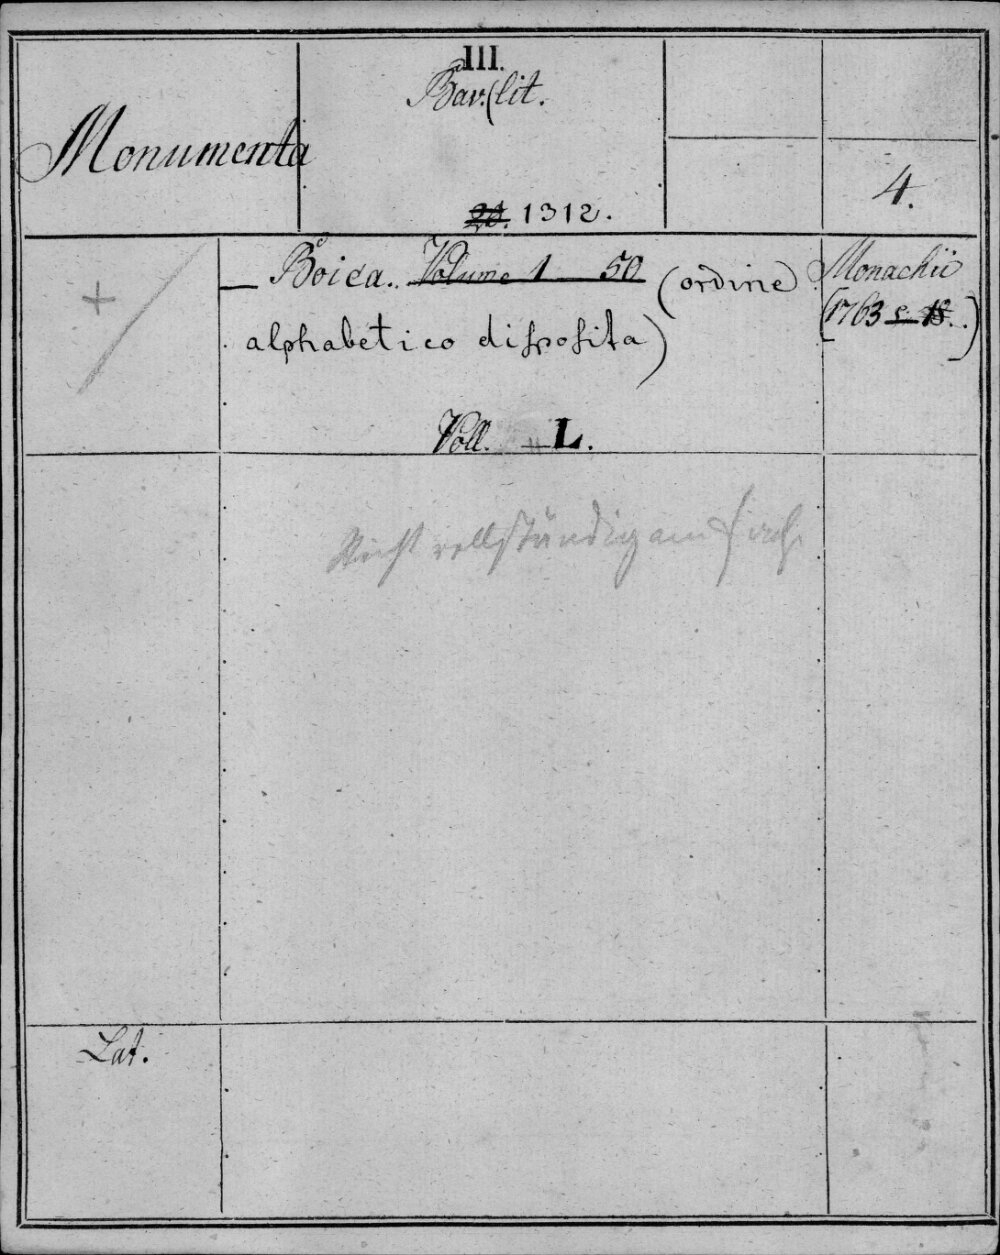 III.
Bav. lit.
Monumenta
4.
1312.
+
— Boica. Volume 1 — 50 (ordine
alphabetico disposita)
Monachii
(1763
Voll. L.
Nicht vollständig am
Lat.